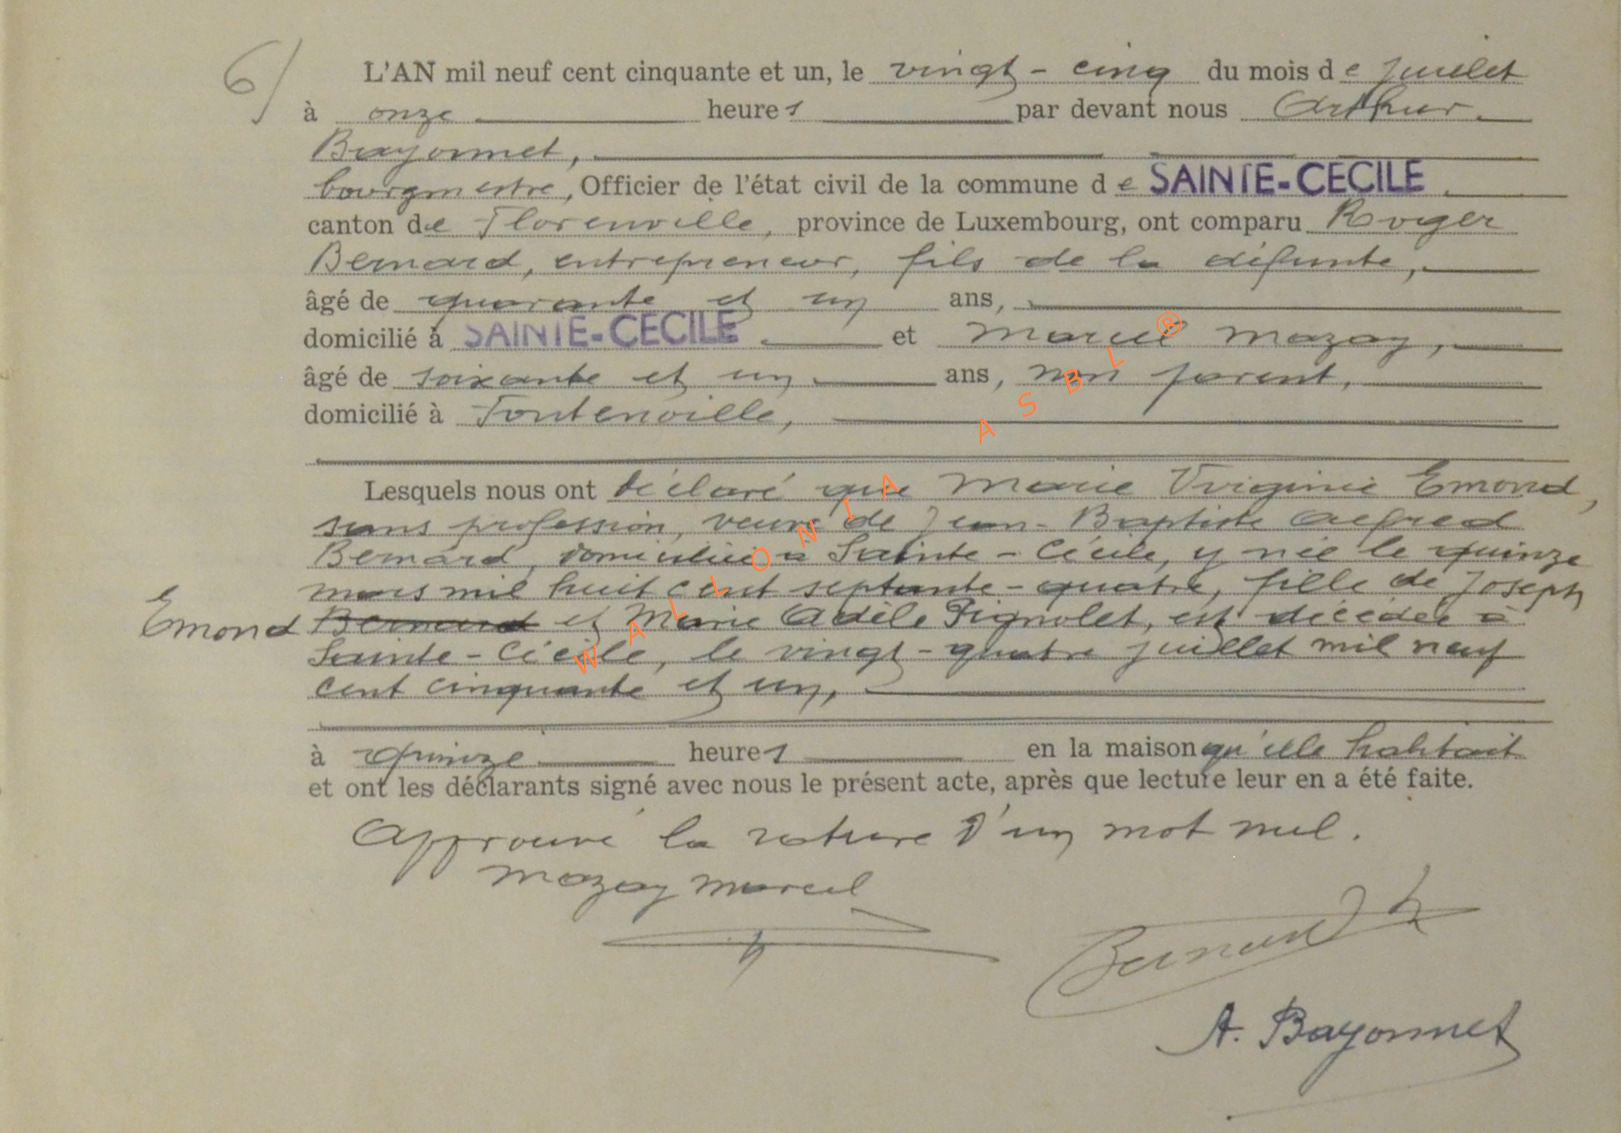 6/
L'AN mil neuf cent cinquante et un, le vingt-cinq du mois de juillet
à onze heures par devant nous Arthur
Bayonnet,
bourgmestre, Officier de l'état civil de la commune de SAINTE-CECILE
canton de Florenville, province de Luxembourg, ont comparu Roger
Bernard, entrepreneur, fils de la défunte,
âgé de quarante et un ans,
domicilié à SAINTE-CECILE et Marcel Mazay,
âgé de soixante et un ans, non parent,
domicilié à Fontenoille,
Lesquels nous ont déclaré que Marie Virginie Emond,
sans profession, veuve de Jean-Baptiste Alfred
Bernard, domiciliée à Sainte-Cécile, y née le quinze
mars mil huit cent septante-quatre, fille de Joseph
Emond Bernard et Marie Adèle Pignolet, est décédée à
Sainte-Cécile, le vingt-quatre juillet mil neuf
cent cinquante et un,
à quinze heures en la maison qu'elle habitait
et ont les déclarants signé avec nous le présent acte, après que lecture leur en a été faite.
Approuvé la rature d'un mot nul.
Mazay Marcel
Bernard
A. Bayonnet
WALLONIA ASBL ®